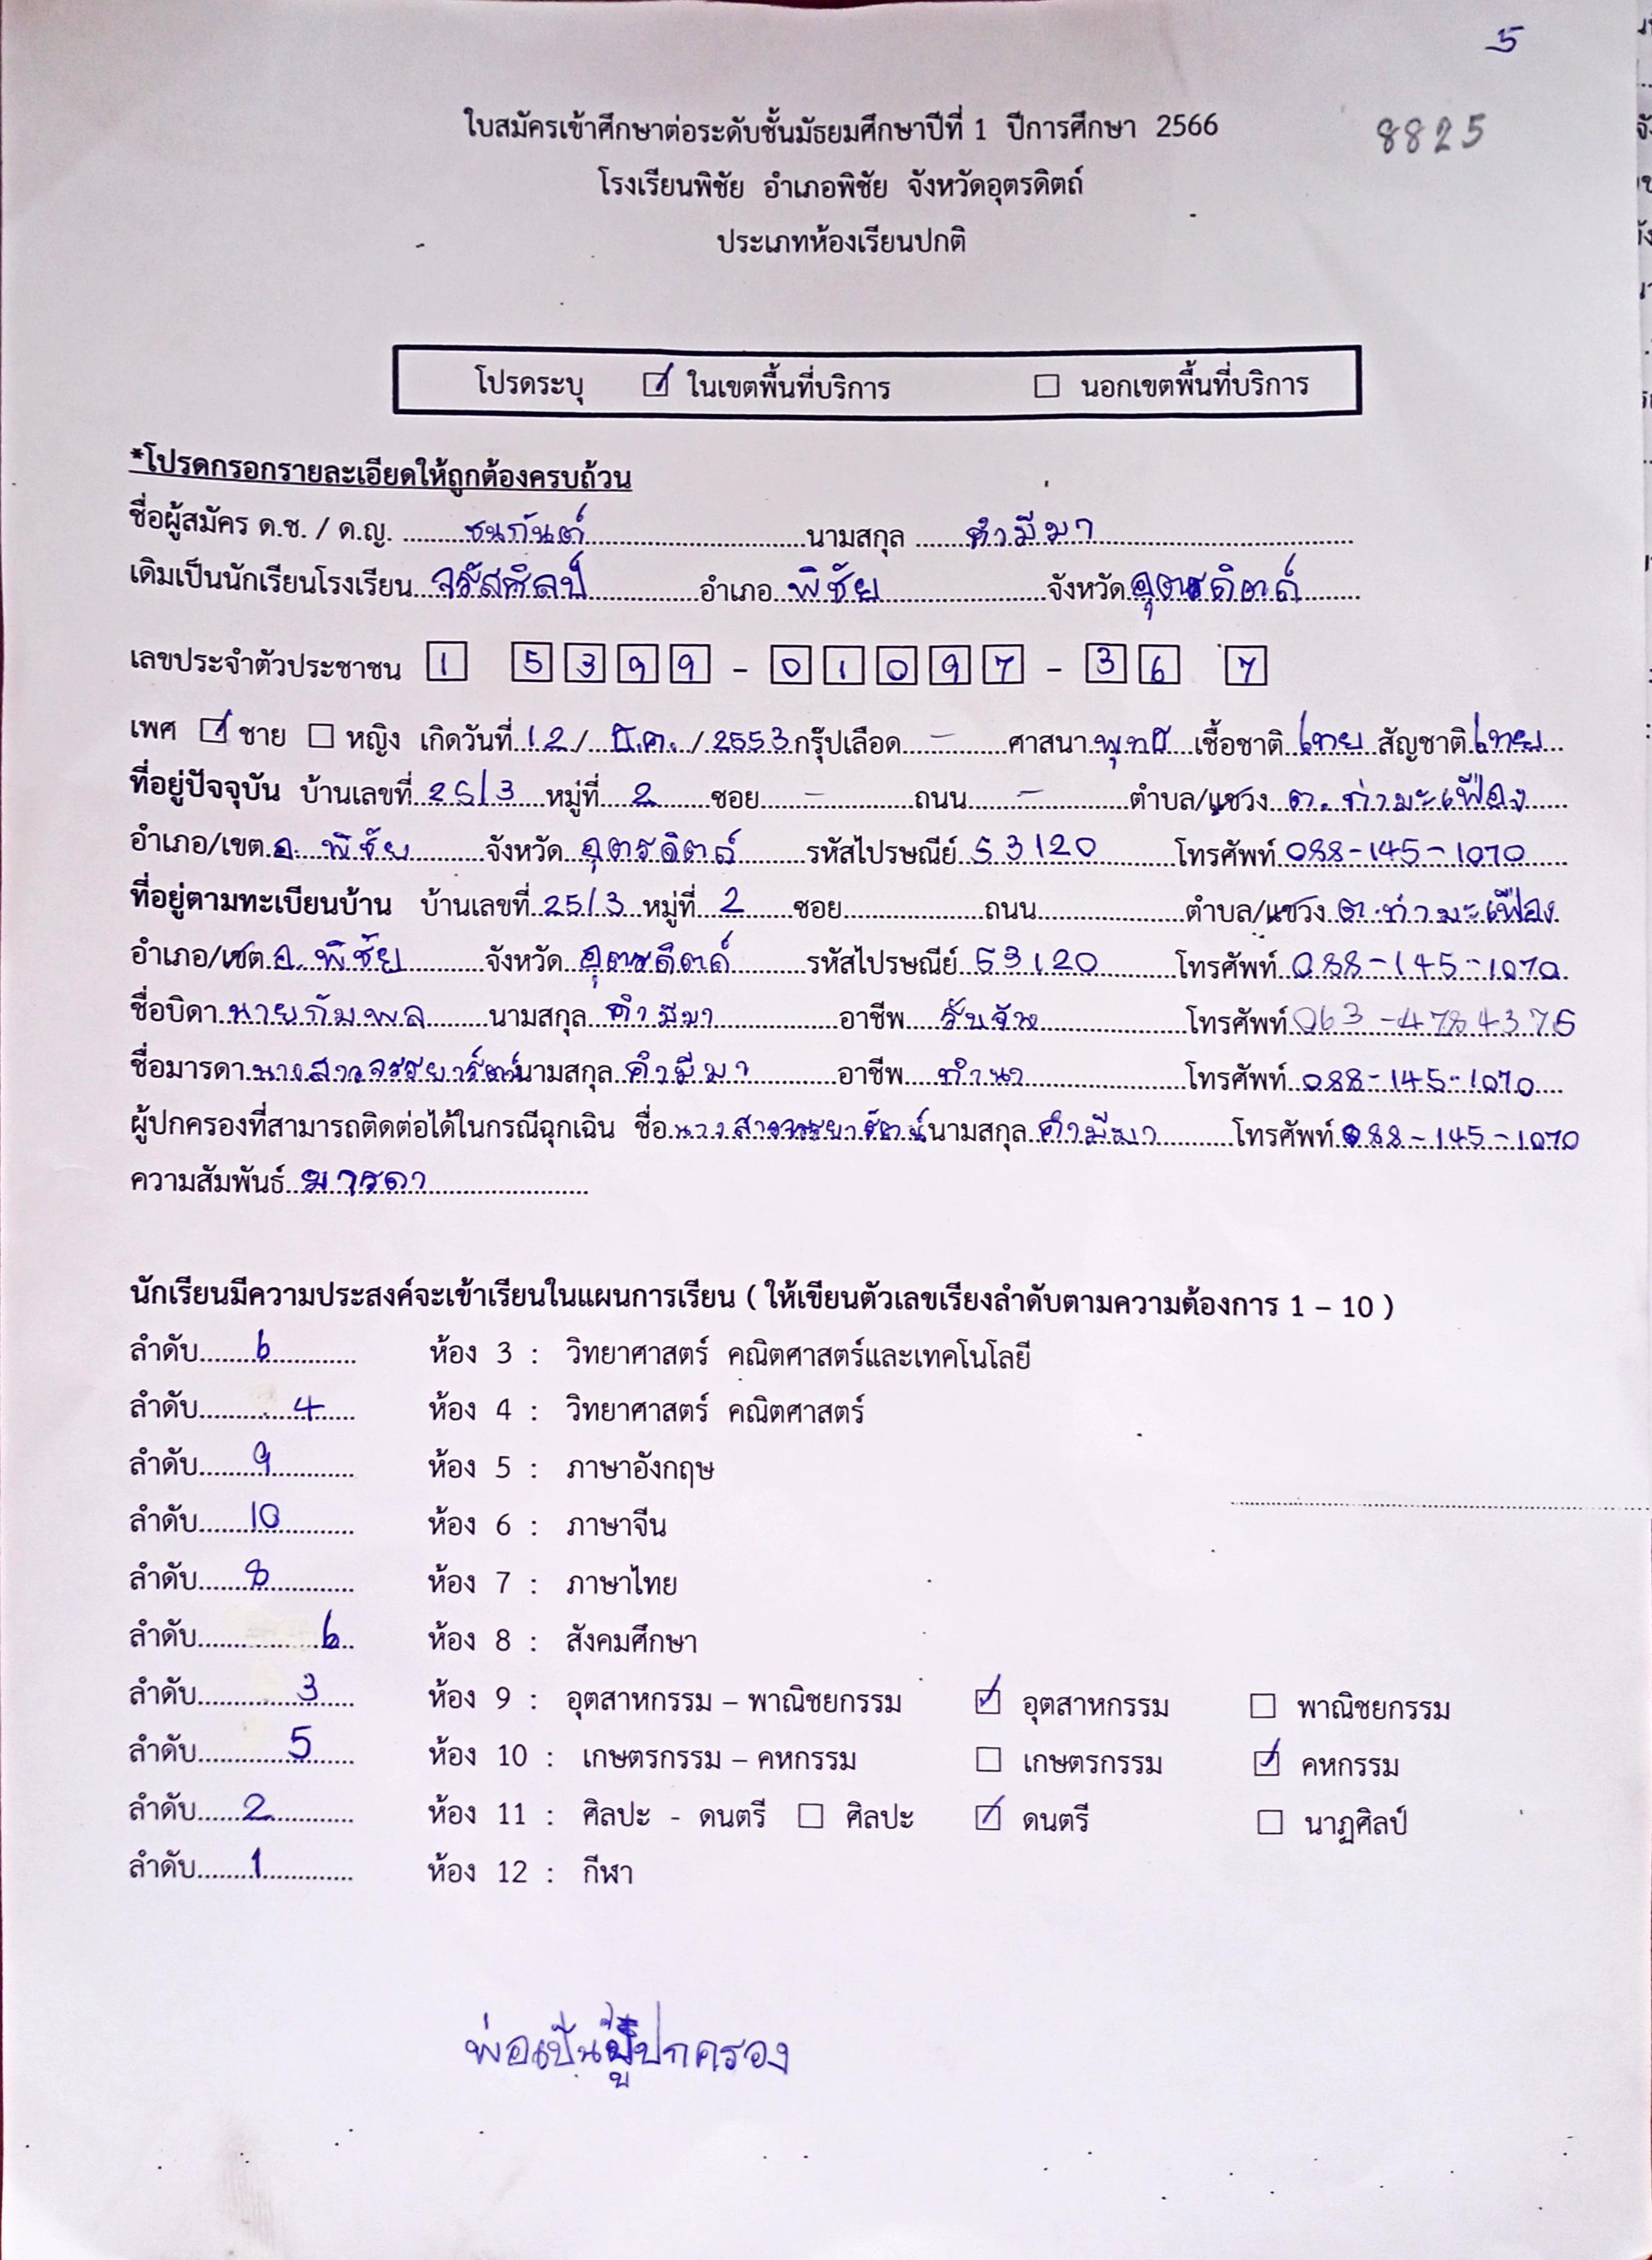 5
ใบสมัครเข้าศึกษาต่อระดับชั้นมัธยมศึกษาปีที่ 1 ปีการศึกษา 2566
8825
โรงเรียนพิชัย อำเภอพิชัย จังหวัดอุตรดิตถ์
ประเภทห้องเรียนปกติ
โปรดระบุ ☑ ในเขตพื้นที่บริการ ☐ นอกเขตพื้นที่บริการ
*โปรดกรอกรายละเอียดให้ถูกต้องครบถ้วน
ชื่อผู้สมัคร ด.ช. / ด.ญ. ชนกันต์ นามสกุล คำมีมา
เดิมเป็นนักเรียนโรงเรียน จรัสศิลป์ อำเภอ พิชัย จังหวัด อุตรดิตถ์
เลขประจำตัวประชาชน 1 5399 - 01097 - 36 7
เพศ ☑ ชาย ☐ หญิง เกิดวันที่ 12 / ธ.ค. / 2553 กรุ๊ปเลือด - ศาสนา พุทธ เชื้อชาติ ไทย สัญชาติ ไทย
ที่อยู่ปัจจุบัน บ้านเลขที่ 25/3 หมู่ที่ 2 ซอย - ถนน - ตำบล/แขวง ต. ท่ามะเฟือง
อำเภอ/เขต อ. พิชัย จังหวัด อุตรดิตถ์ รหัสไปรษณีย์ 53120 โทรศัพท์ 088-145-1070
ที่อยู่ตามทะเบียนบ้าน บ้านเลขที่ 25/3 หมู่ที่ 2 ซอย ถนน ตำบล/แขวง ต. ท่ามะเฟือง
อำเภอ/เขต อ. พิชัย จังหวัด อุตรดิตถ์ รหัสไปรษณีย์ 53120 โทรศัพท์ 088-145-1070
ชื่อบิดา นายกัมพล นามสกุล คำมีมา อาชีพ รับจ้าง โทรศัพท์ 063-4784375
ชื่อมารดา นางสาวจรรยารัตน์ นามสกุล คำมีมา อาชีพ ทำนา โทรศัพท์ 088-145-1070
ผู้ปกครองที่สามารถติดต่อได้ในกรณีฉุกเฉิน ชื่อ นางสาวจรรยารัตน์ นามสกุล คำมีมา โทรศัพท์ 088-145-1070
ความสัมพันธ์ มารดา
นักเรียนมีความประสงค์จะเข้าเรียนในแผนการเรียน ( ให้เขียนตัวเลขเรียงลำดับตามความต้องการ 1 – 10 )
ลำดับ 6 ห้อง 3 : วิทยาศาสตร์ คณิตศาสตร์และเทคโนโลยี
ลำดับ 4 ห้อง 4 : วิทยาศาสตร์ คณิตศาสตร์
ลำดับ 9 ห้อง 5 : ภาษาอังกฤษ
ลำดับ 10 ห้อง 6 : ภาษาจีน
ลำดับ 8 ห้อง 7 : ภาษาไทย
ลำดับ 6 ห้อง 8 : สังคมศึกษา
ลำดับ 3 ห้อง 9 : อุตสาหกรรม – พาณิชยกรรม ☑ อุตสาหกรรม ☐ พาณิชยกรรม
ลำดับ 5 ห้อง 10 : เกษตรกรรม – คหกรรม ☐ เกษตรกรรม ☑ คหกรรม
ลำดับ 2 ห้อง 11 : ศิลปะ - ดนตรี ☐ ศิลปะ ☑ ดนตรี ☐ นาฏศิลป์
ลำดับ 1 ห้อง 12 : กีฬา
พ่อเป็นผู้ปกครอง